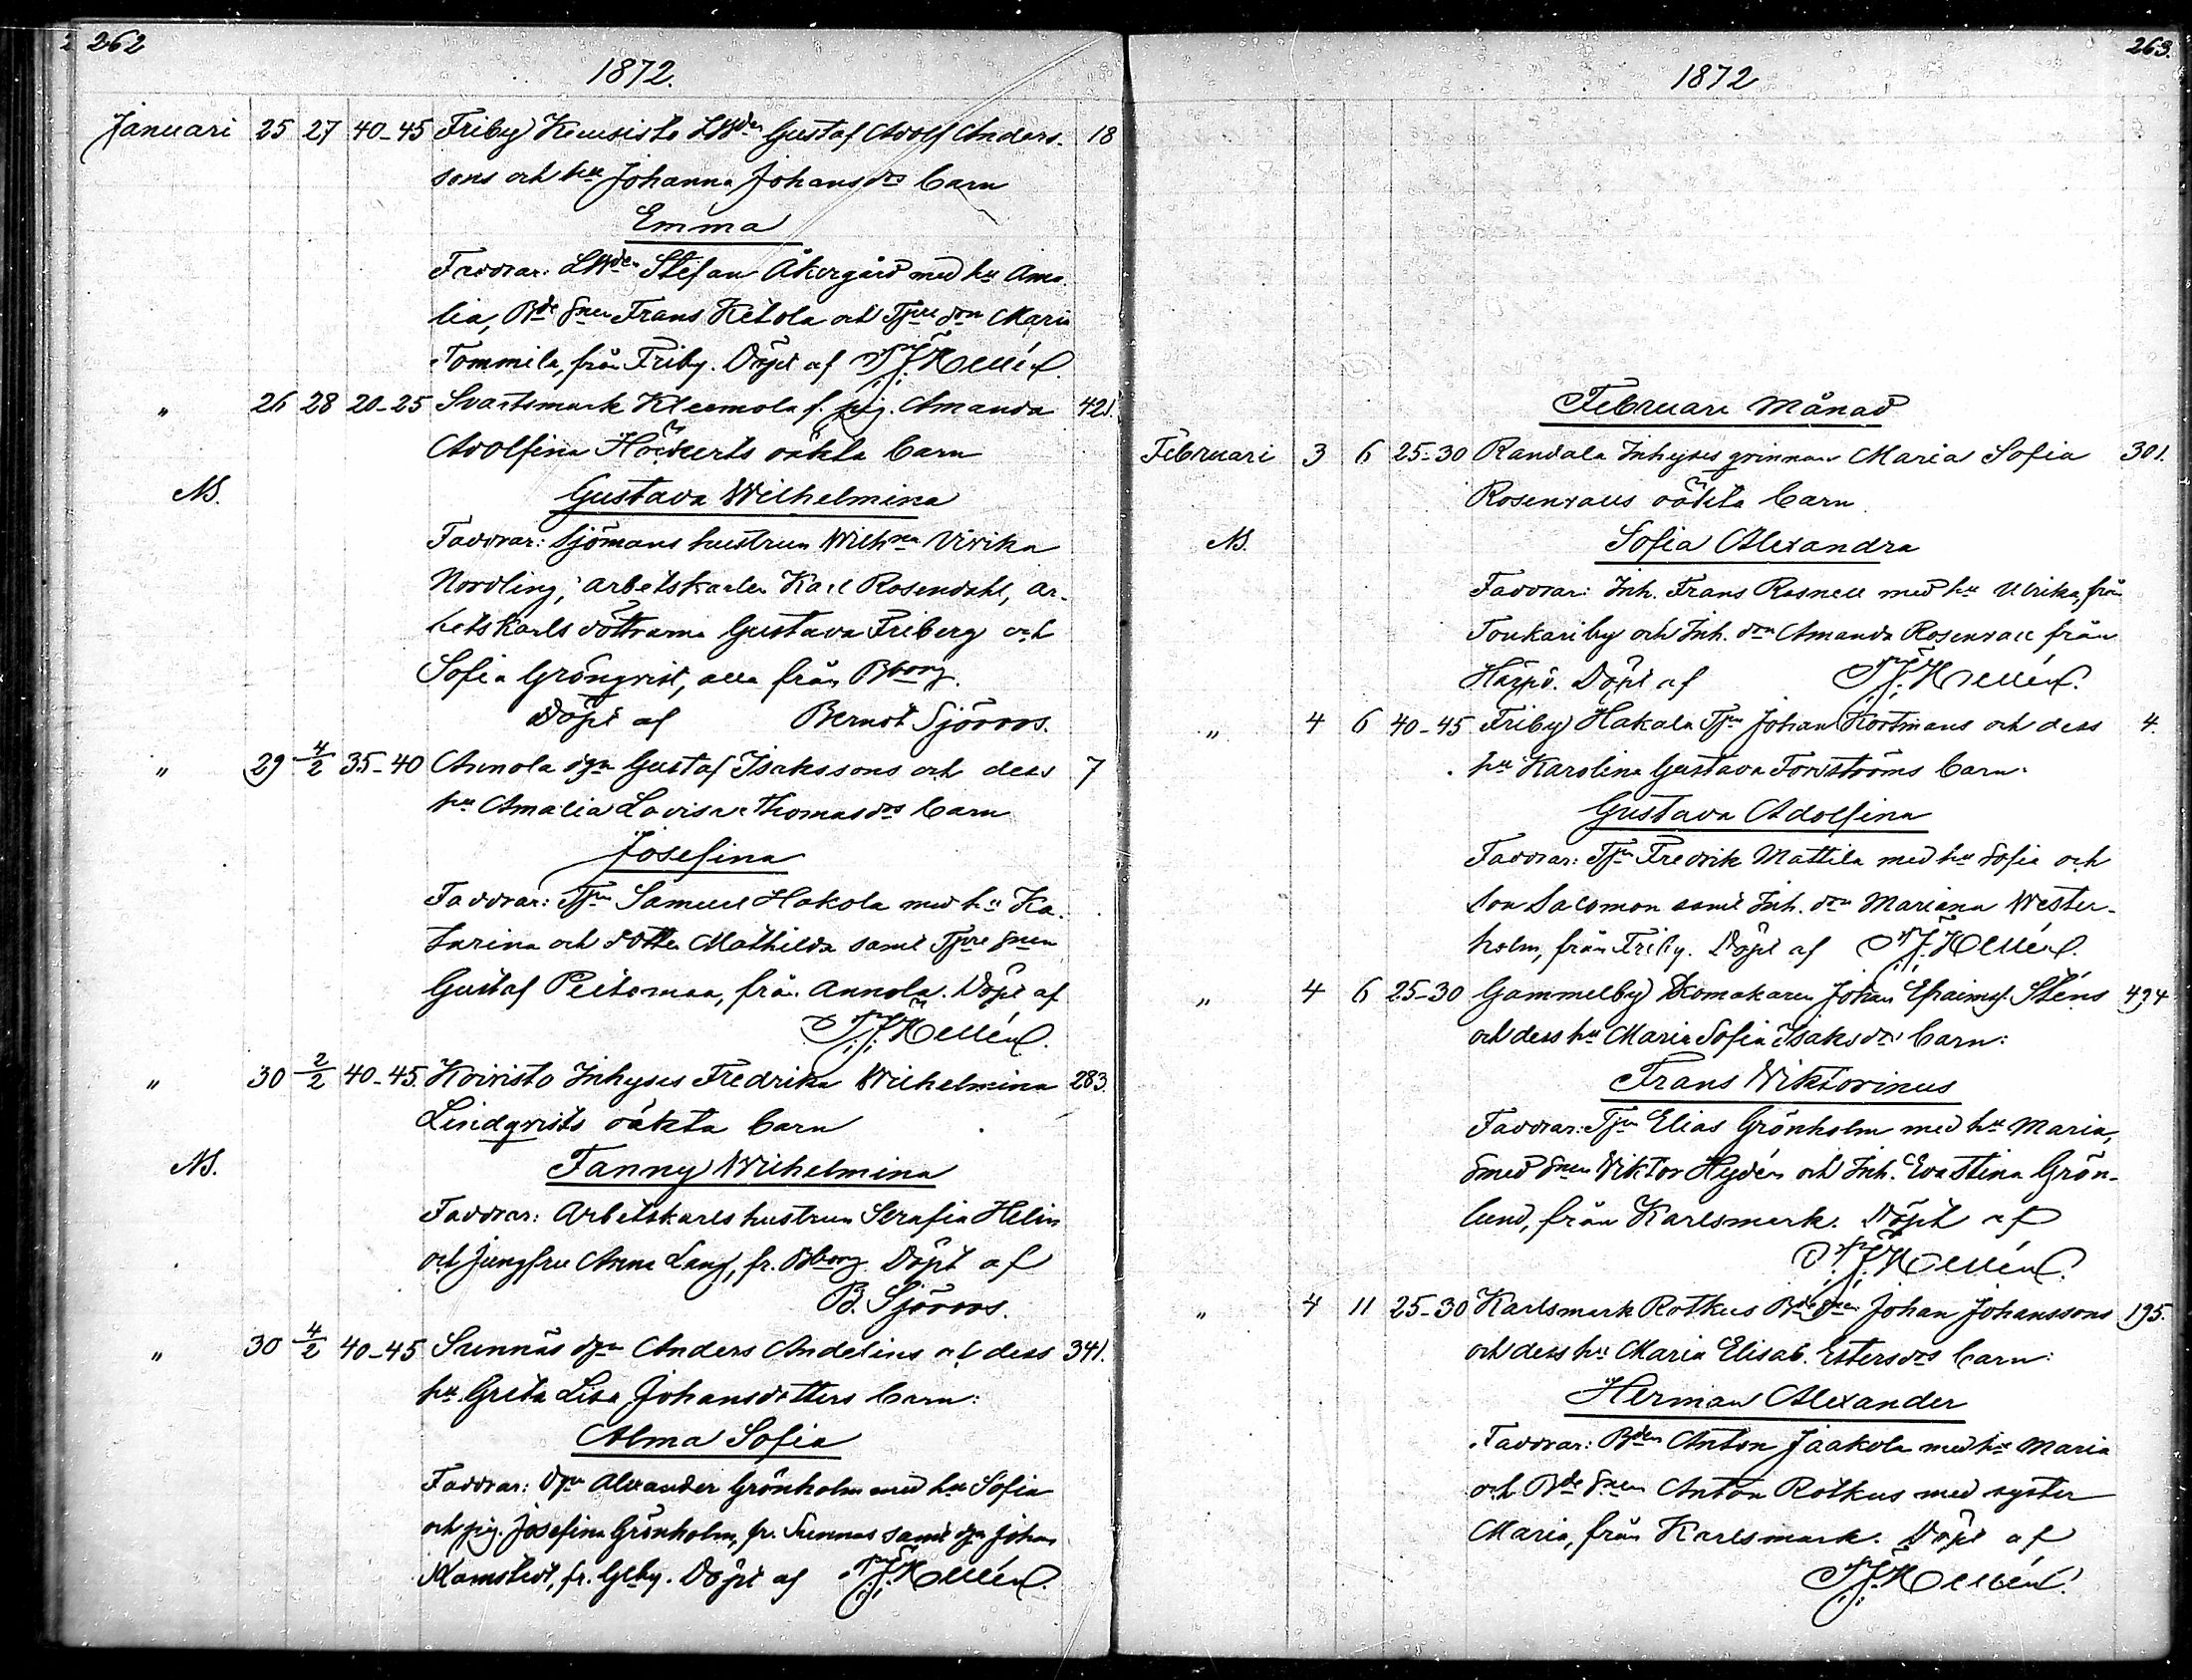 262
1872.
Januari 25 27 40-45 Friby Kuusisto Gustaf Adolf Anders- 18
sons och hu Johanna Johansdrs barn
Emma
Faddrar: Stefan Åkergård med hu Ama-
lia, Bde snen Frans Ketola och Tjre drn Maria
Tommila, från Friby. Döpt af Hellén.
" 26 28 20-25 Svartsmark Kleemola f. pig. Amanda 421.
Adolfina Höckerts oäkta barn
NB.
Gustava Wilhelmina
Faddrar: Sjömans hustrun Wilhna Vivika
Nordling, arbetskarlen Karl Rosendahl, ar-
betskarls döttrarna Gustava Friberg och
Sofia Grönqvist, alla från Bborg.
Döpt af Berndt Sjöroos.
" 29 4/2 35-40 Annola dgn Gustaf Isakssons och dess 7
hu Amalia Lovisa Thomasdrs barn
Josefina
Faddrar: Tjn Samuel Hakola med hu Ka-
tarina och dotter Mathilda samt Tjre snen
Gustaf Peltomaa, från Annola. Döpt af
Hellén.
" 30 2/2 40-45. Koivisto Inhyses Fredrika Wilhelmina 283.
Lindqvists oäkta barn
NB.
Fanny Wilhelmina
Faddrar: Arbetskarls hustrun Serafia Helin
och jungfru Anna Lang, fr. Bborg. Döpt af
B. Sjöroos.
" 30 4/2 40-45 Sunnäs dgn Anders Andelins och dess 341.
hu Greta Lisa Johansdotters barn:
Alma Sofia
Faddrar: Dgn Alexander Grönholm med hu Sofia
och pig. Josefina Grönholm, fr. Sunnäs samt dgn Johan
Kamstedt, fr. Glby. Döpt af Hellén.
263.
1872
Februari Månad
Februari 3 6 25-30 Randala Inhyses qvinnan Maria Sofia 301.
Rosenvalls oäkta barn
NB.
Sofia Alexandra
Faddrar: Inh. Frans Rosnell med hu Ulrika, från
Toukariby och Inh. drn Amanda Rosenvall från
Härpö. Döpt af Hellén.
" 4 6 40-45 Friby Hakala Tjn Johan Kortmans och dess 4.
hu Karolina Gustava Forsströms barn.
Gustava Adolfina
Faddrar: Tjn Fredrik Mattila med hu Sofia och
son Salomon samt Inh. drn Mariana Wester-
holm, från Friby. Döpt af Hellén.
" 4 6 25-30 Gammelby Skomakaren Johan Efraimsf. Sténs 494
och dess hu Maria Sofia Isaksdrs barn:
Frans Wiktorinus
Faddrar: Tjn Elias Grönholm med hu Maria,
Smed snen Wiktor Hydén och Inh. Eva Stina Grön-
lund, från Karlsmark. Döpt af
Hellén.
" 4 11 25-30 Karlsmark Rotkus Bde snen Johan Johanssons 195.
och dess hu Maria Elisab. Estersdrs barn:
Herman Alexander
Faddrar: Bden Anton Jaakola med hu Maria
och Bde snen Anton Rotkus med syster
Maria, från Karlsmark. Döpt af
Hellén.